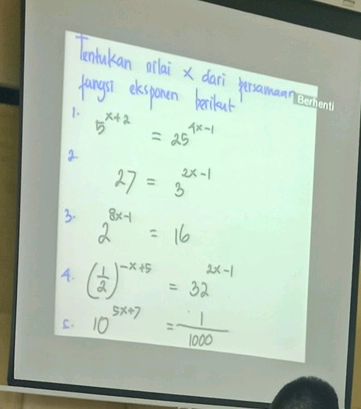 Tentukan nilai x dari persamaan
fungsi eksponen berikut
Berhenti
1. 5^{x+2} = 25^{4x-1}
2. 27 = 3^{2x-1}
3. 2^{8x-1} = 16
4. (1/2)^{-x+5} = 32^{2x-1}
5. 10^{5x+7} = 1/1000